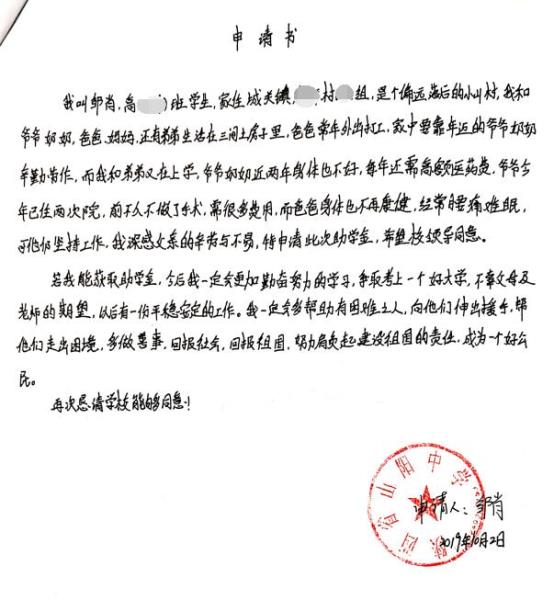 申请书
我叫邹肖,高 班学生,家住城关镇, 村 组,是个偏远落后的小山村,我和
爷爷奶奶、爸爸、妈妈,还有弟弟生活在三间土房子里,爸爸常年外出打工,家中要靠年迈的爷爷奶奶
辛勤劳作,而我和弟弟又在上学,爷爷奶奶近两年身体也不好,每年还需高额医药费,爷爷今
年已住两次院,前不久不做了手术,需很多费用,而爸爸身体也不再康健,经常腰痛难眠,
可他仍坚持工作。我深感父亲的辛劳与不易,特申请此次助学金,希望校领导同意。
若我能获取助学金,今后我一定会更加勤奋努力的学习,争取考上一个好大学,不辜父母及
老师的期望,以后有一份平稳安定的工作。我一定会多帮助有困难之人,向他们伸出援手,帮
他们走出困境,多做善事,回报社会,回报祖国,努力肩负起建设祖国的责任,成为一个好公
民。
再次恳请学校能够同意!
陕西省山阳中学
申请人:邹肖
2019年10月2日